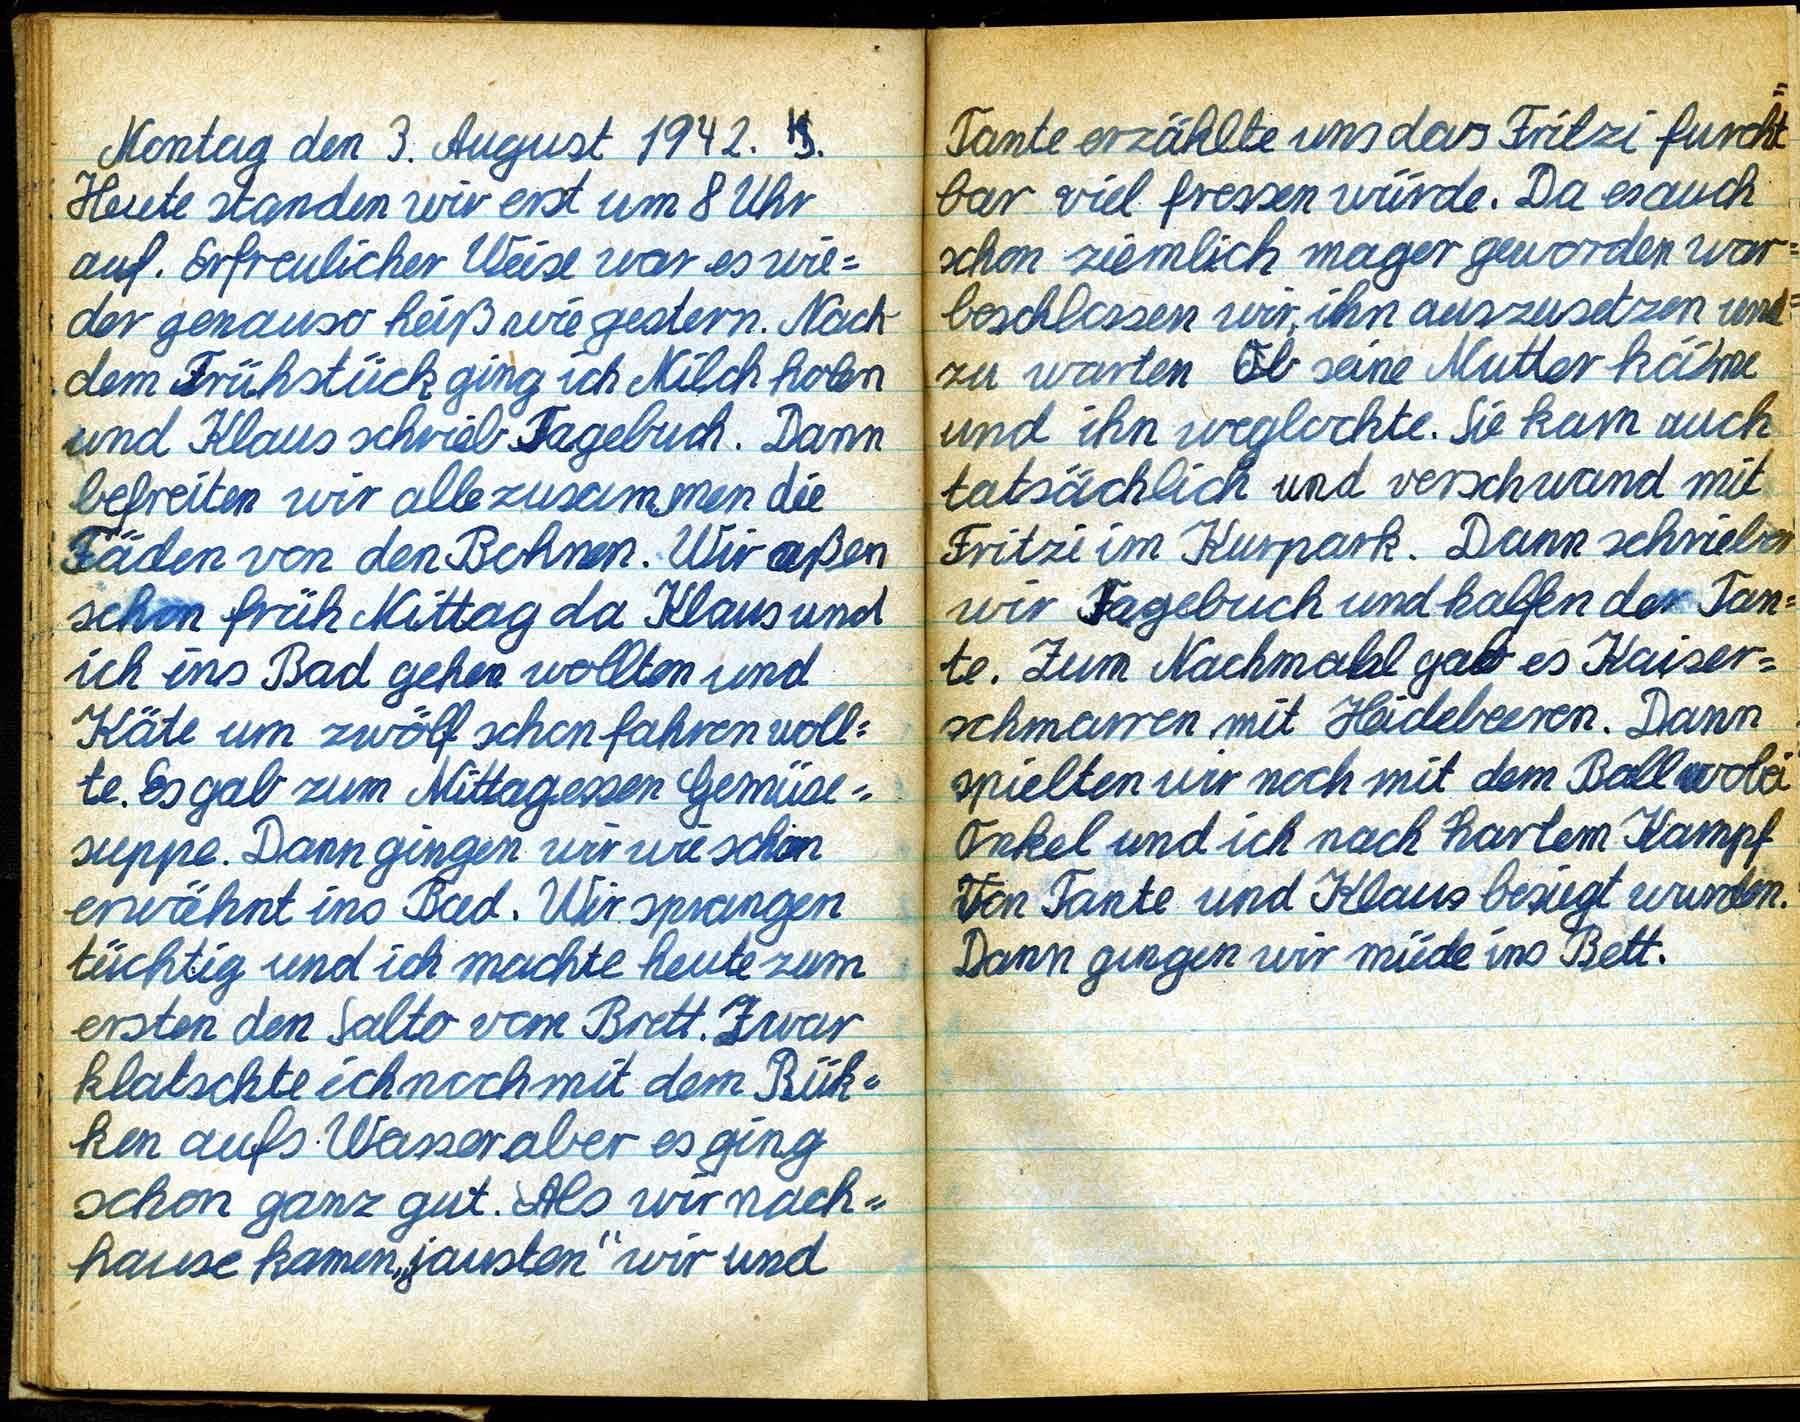 Montag den 3. August 1942.
Heute standen wir erst um 8 Uhr
auf. Erfreulicher Weise war es wie=
der genauso heiß wie gestern. Nach
dem Frühstück ging ich Milch holen
und Klaus schrieb Tagebuch. Dann
befreiten wir alle zusammen die
Fäden von den Bohnen. Wir aßen
schon früh Mittag da Klaus und
ich ins Bad gehen wollten und
Käte um zwölf schon fahren woll=
te. Es gab zum Mittagessen Gemüse=
suppe. Dann gingen wir wie schon
erwähnt ins Bad. Wir sprangen
tüchtig und ich machte heute zum
ersten den Salto vom Brett. Zwar
klatschte ich noch mit dem Rük=
ken aufs Wasser aber es ging
schon ganz gut. Als wir nach=
hause kamen „jausten" wir und
Tante erzählte uns das Fritzi furcht=
bar viel fressen würde. Da es auch
schon ziemlich mager geworden war=
beschlossen wir, ihn auszusetzen und=
zu warten Ob seine Mutter käme
und ihn weglockte. Sie kam auch
tatsächlich und verschwand mit
Fritzi im Kurpark. Dann schrieben
wir Tagebuch und halfen der Tan=
te. Zum Nachmahl gab es Kaiser=
schmarren mit Heidebeeren. Dann
spielten wir noch mit dem Ball wobei
Onkel und ich nach hartem Kampf
Von Tante und Klaus besiegt wurden.
Dann gingen wir müde ins Bett.